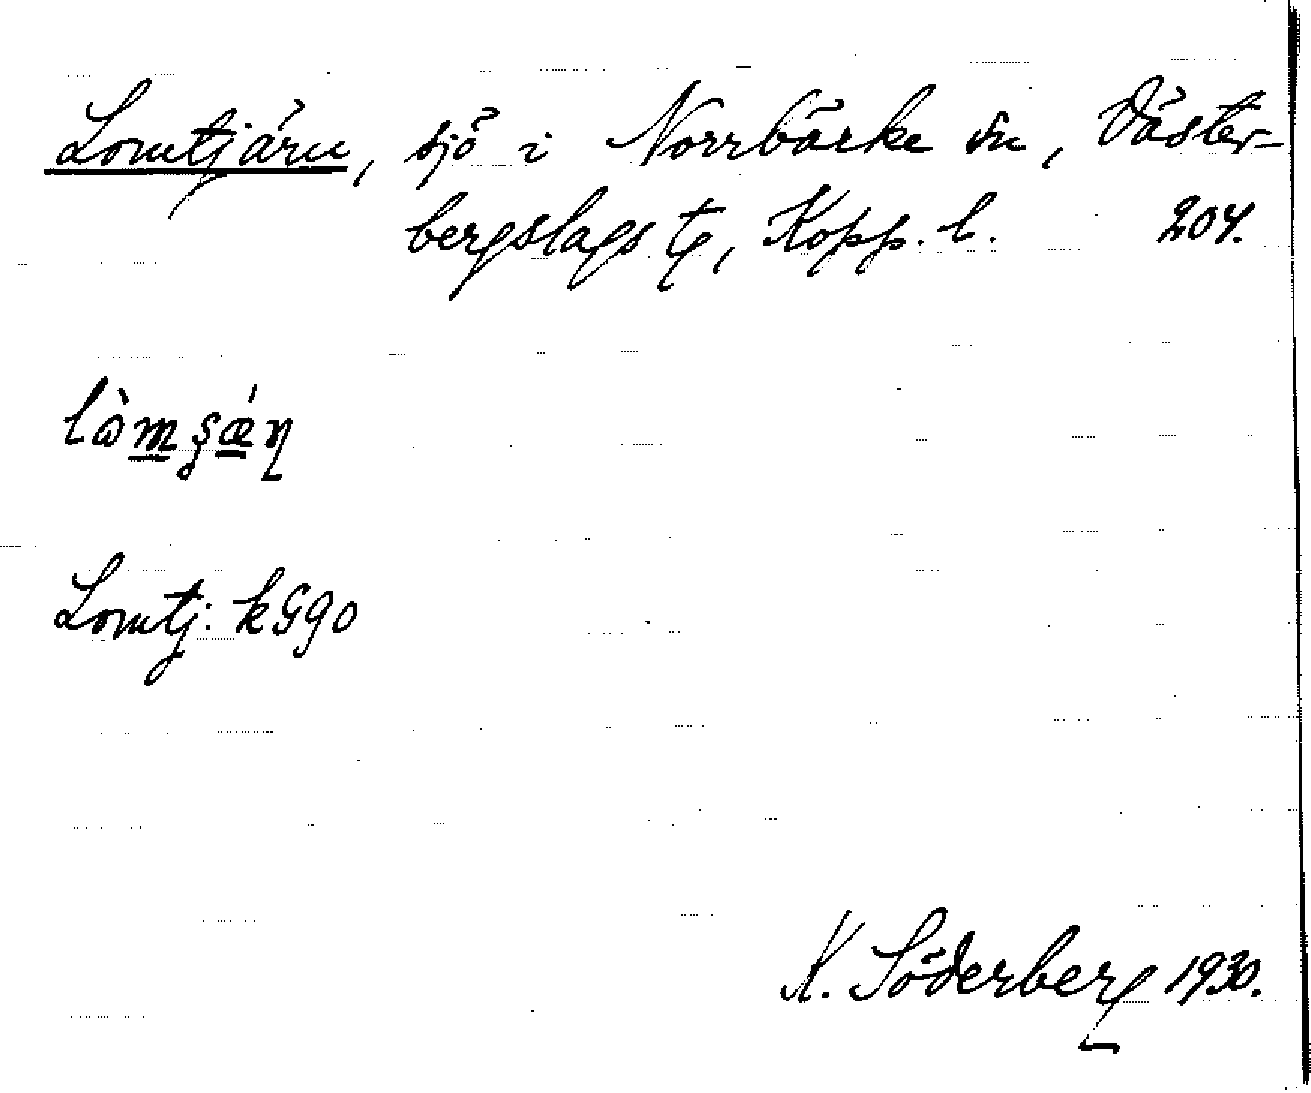 Lomtjärn, sjö i Norrbärke sn, Väster-
bergslags tg, Kopp. l. 204.
Lomtj. kGgo
K. Söderberg 1930.